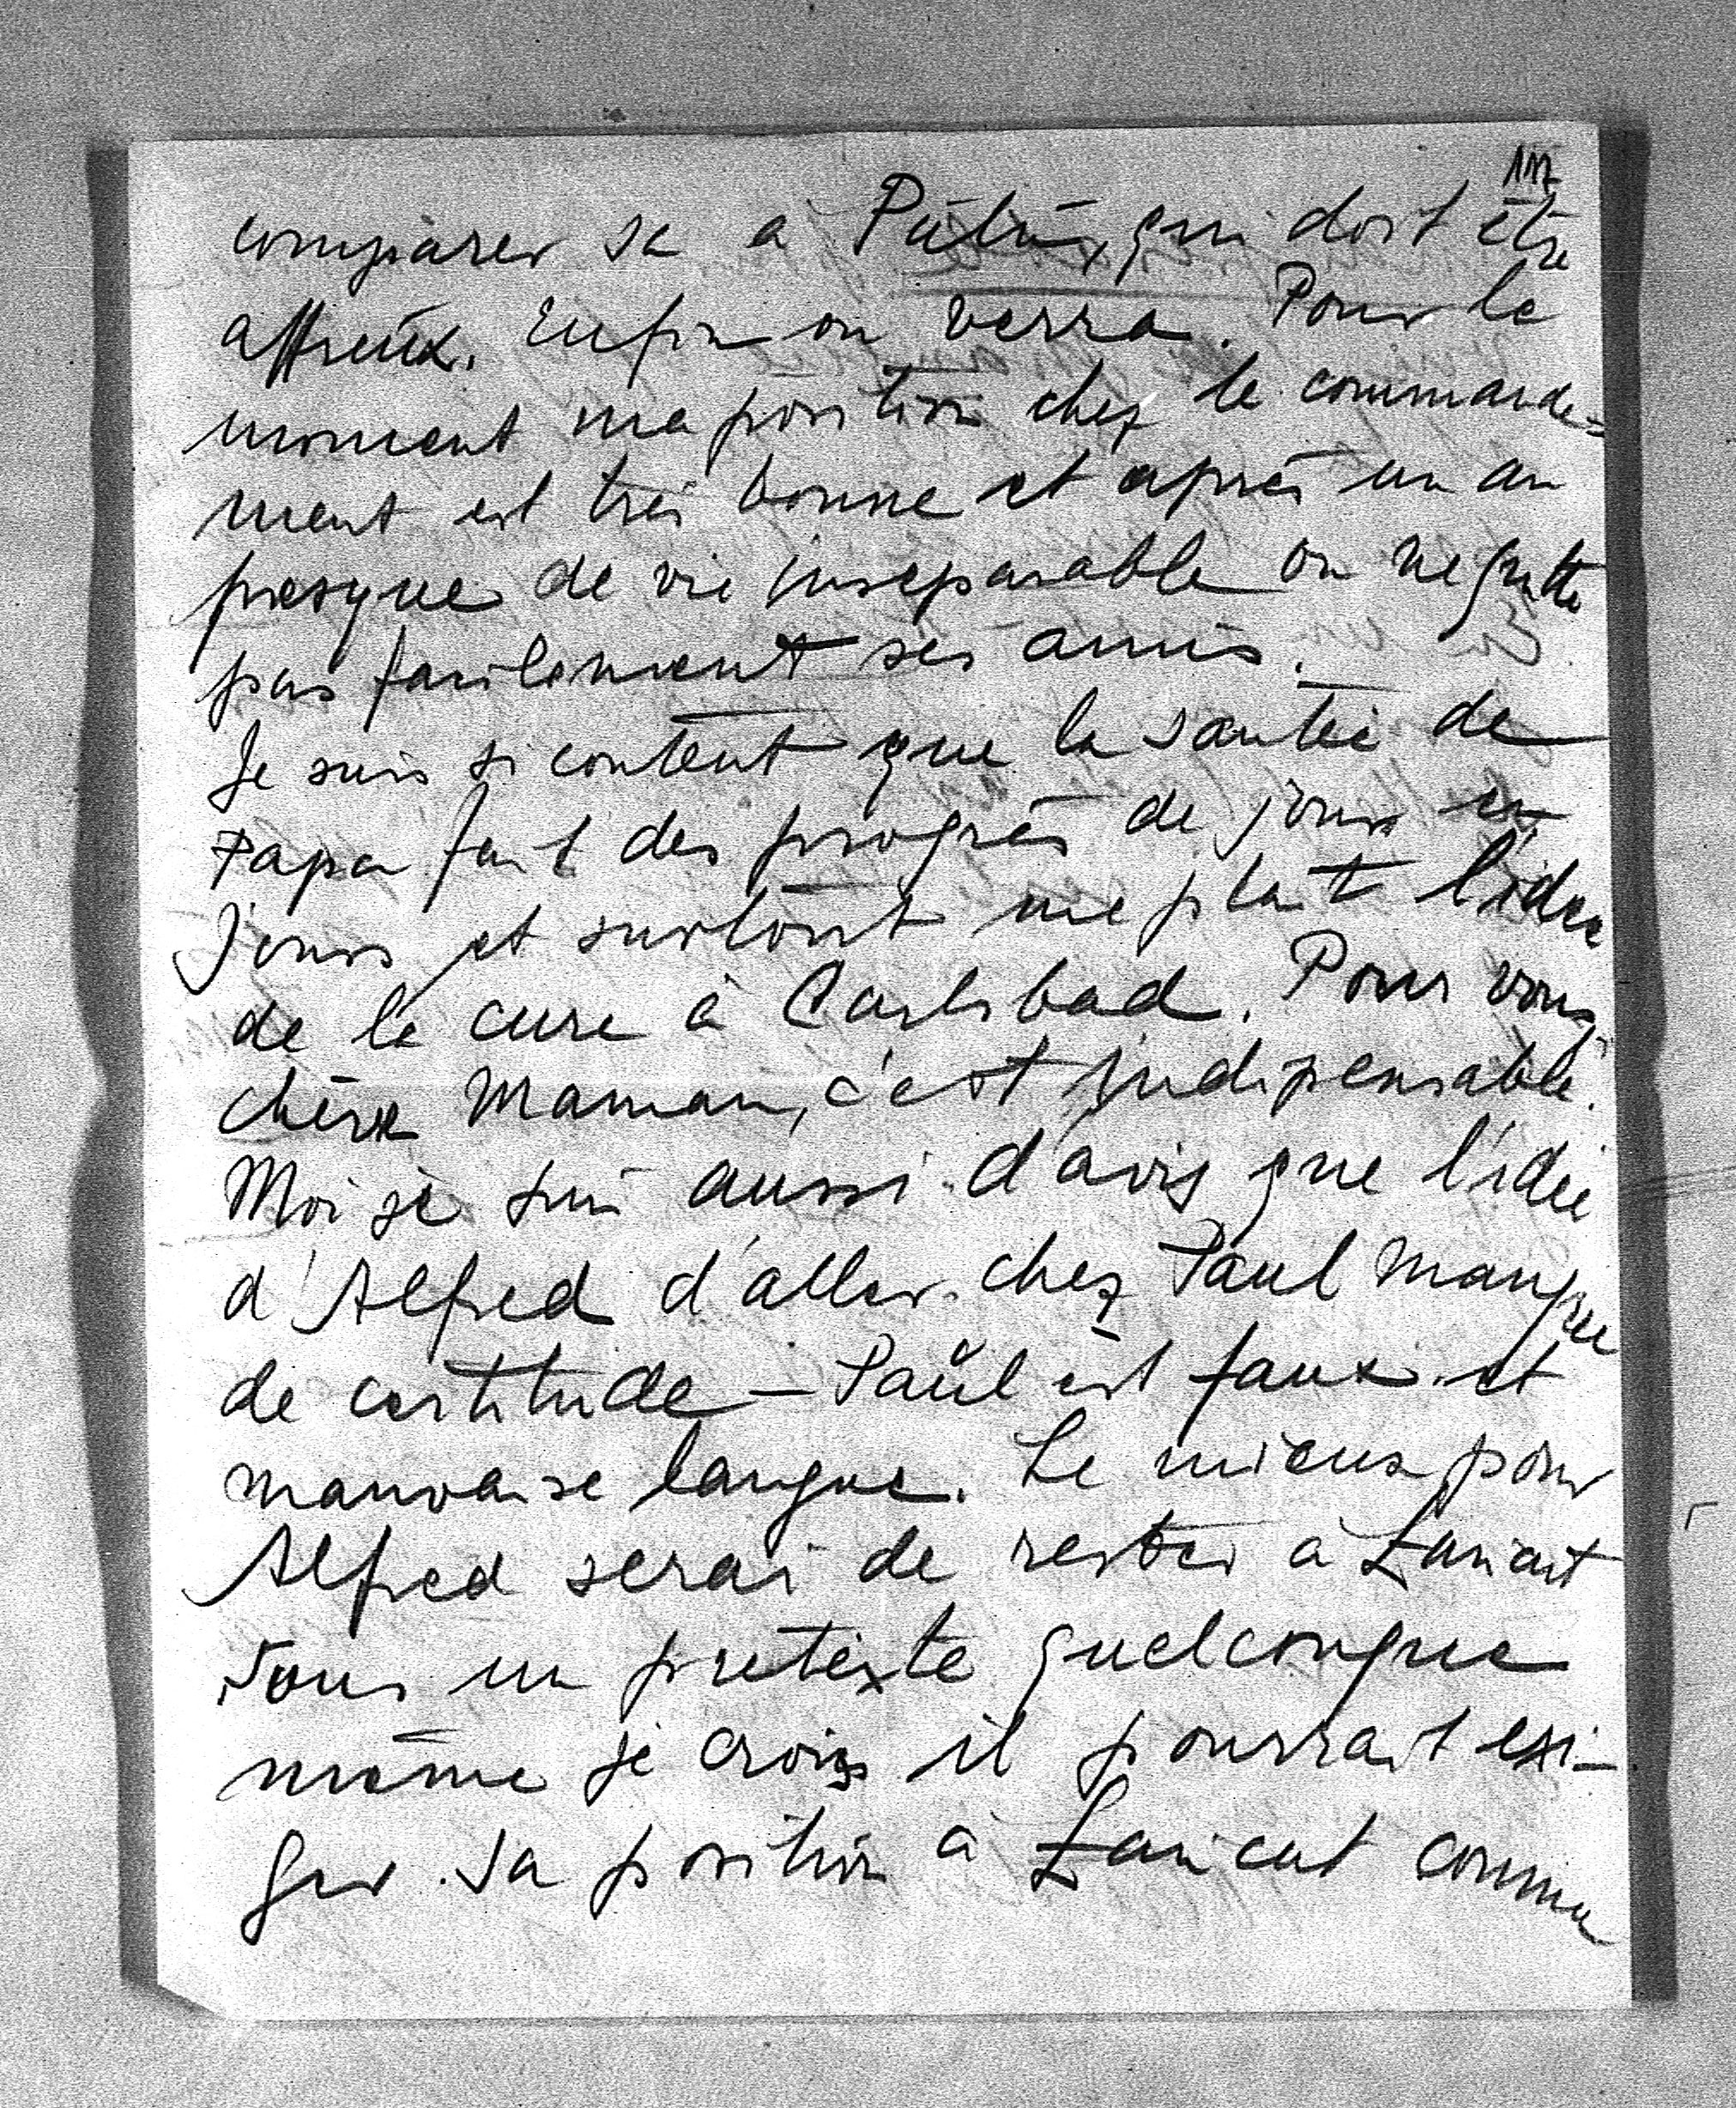 comparer sa a Pulin, qui doit être
affreux. Enfin on verra. Pour le
moment ma position chez le commande=
ment est très bonne et après un an
presque de vie inseparable on ne quitte
pas facilement ses amis.
Je suis si content que la santée de
Papa fait des progrès de jour en
jours et surtout me plait l'idee
de la cure à Carlsbad. Pour vous,
chère Maman, c'est indipensable.
Moi je sui aussi d'avis que l'idée
d'Alfred d'aller chez Paul manque
de certitude — Paŭl est faux et
mauvaise langue. Le mieux pour
Alfred serai de rester à Łancut
sous un pretexte quelconque
même je crois il pourrait exi-
ger sa position à Łancut comme